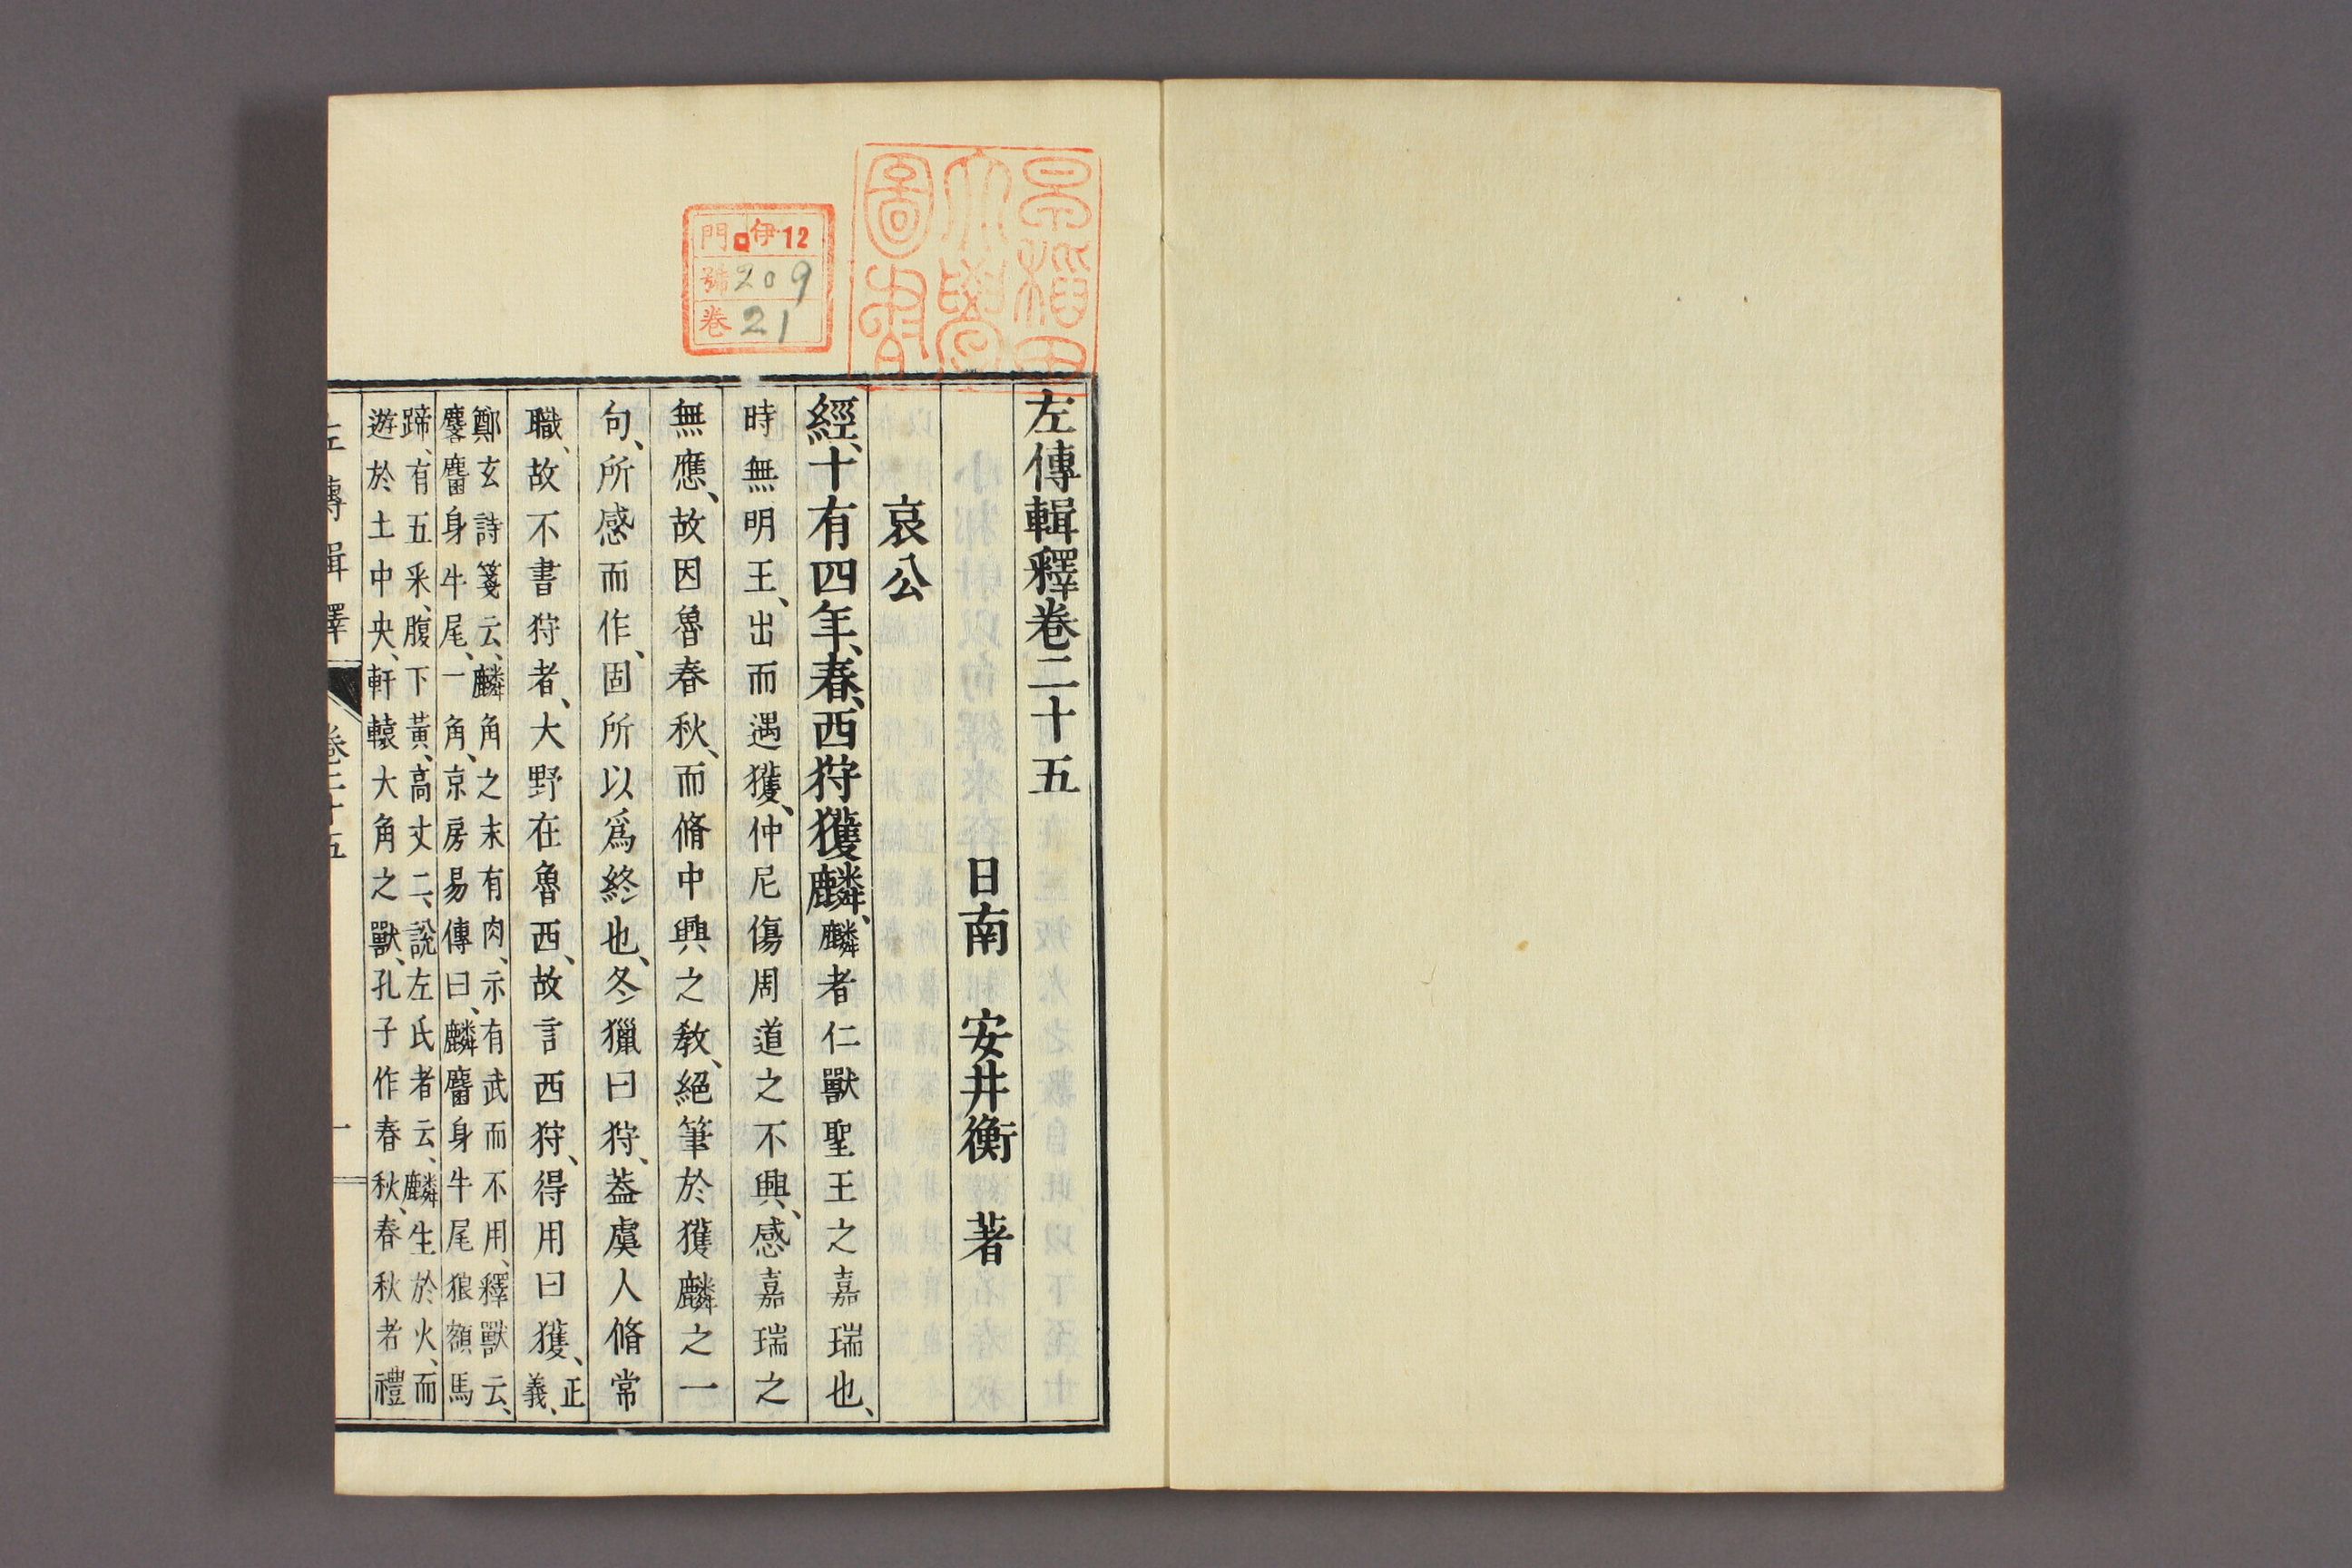 早稲田
大學
圖書
門 伊12
號 209
卷 21
左傳輯釋卷二十五
日南 安井衡 著
哀公
經、十有四年、春、西狩獲麟、麟者仁獸聖王之嘉瑞也、
時無明王、出而遇獲、仲尼傷周道之不興、感嘉瑞之
無應、故因魯春秋、而脩中興之教、絕筆於獲麟之一
句、所感而作、固所以爲終也、冬獵曰狩、葢虞人脩常
職、故不書狩者、大野在魯西、故言西狩、得用曰獲、正義、
鄭玄詩箋云、麟角之末有肉、示有武而不用、釋獸云、
麐麕身牛尾、一角、京房易傳曰、麟麕身牛尾狼額馬
蹄、有五采、腹下黃、高丈二、說左氏者云、麟生於火、而
遊於土中央、軒轅大角之獸、孔子作春秋、春秋者禮
左傳輯釋 卷二十五 一